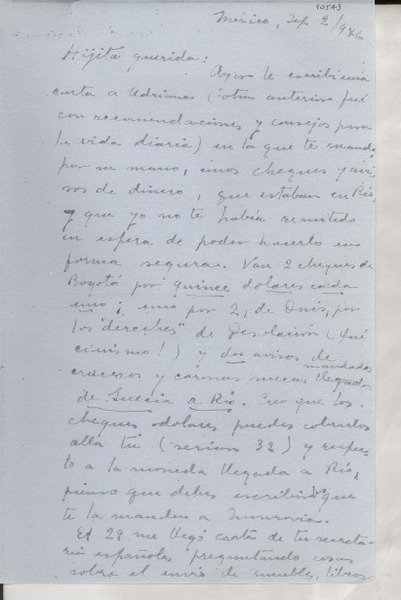 10543
México, Sep 2/946
Hijita querida:
Ayer le escribí una
carta a Adriana (otra anterior fué
con recomendaciones y consejos para
la vida diaria) en la que te mandé,
por su mano, unos cheques y avi-
sos de dinero, que estaban en Río,
y que yo no te había remitido
en espera de poder hacerlo en
forma segura. Van 2 cheques de
Bogotá por quince dolares cada
uno; uno por 2, de Onís, por
los "derechos" de Desolación (Qué
cinismo!) y dos avisos de
mandadas
suecas llegadas
de Suecia a Río. Creo que los
cheques dolares puedes cobrarlos
alla tú (serían 32) y respec-
to a la moneda llegada a Río,
pienso que debes escribir que
te la manden a Monrovia.
El 29 me llegó carta de tu secreta-
ria española preguntando cosas
sobre el envío de muebles, libros